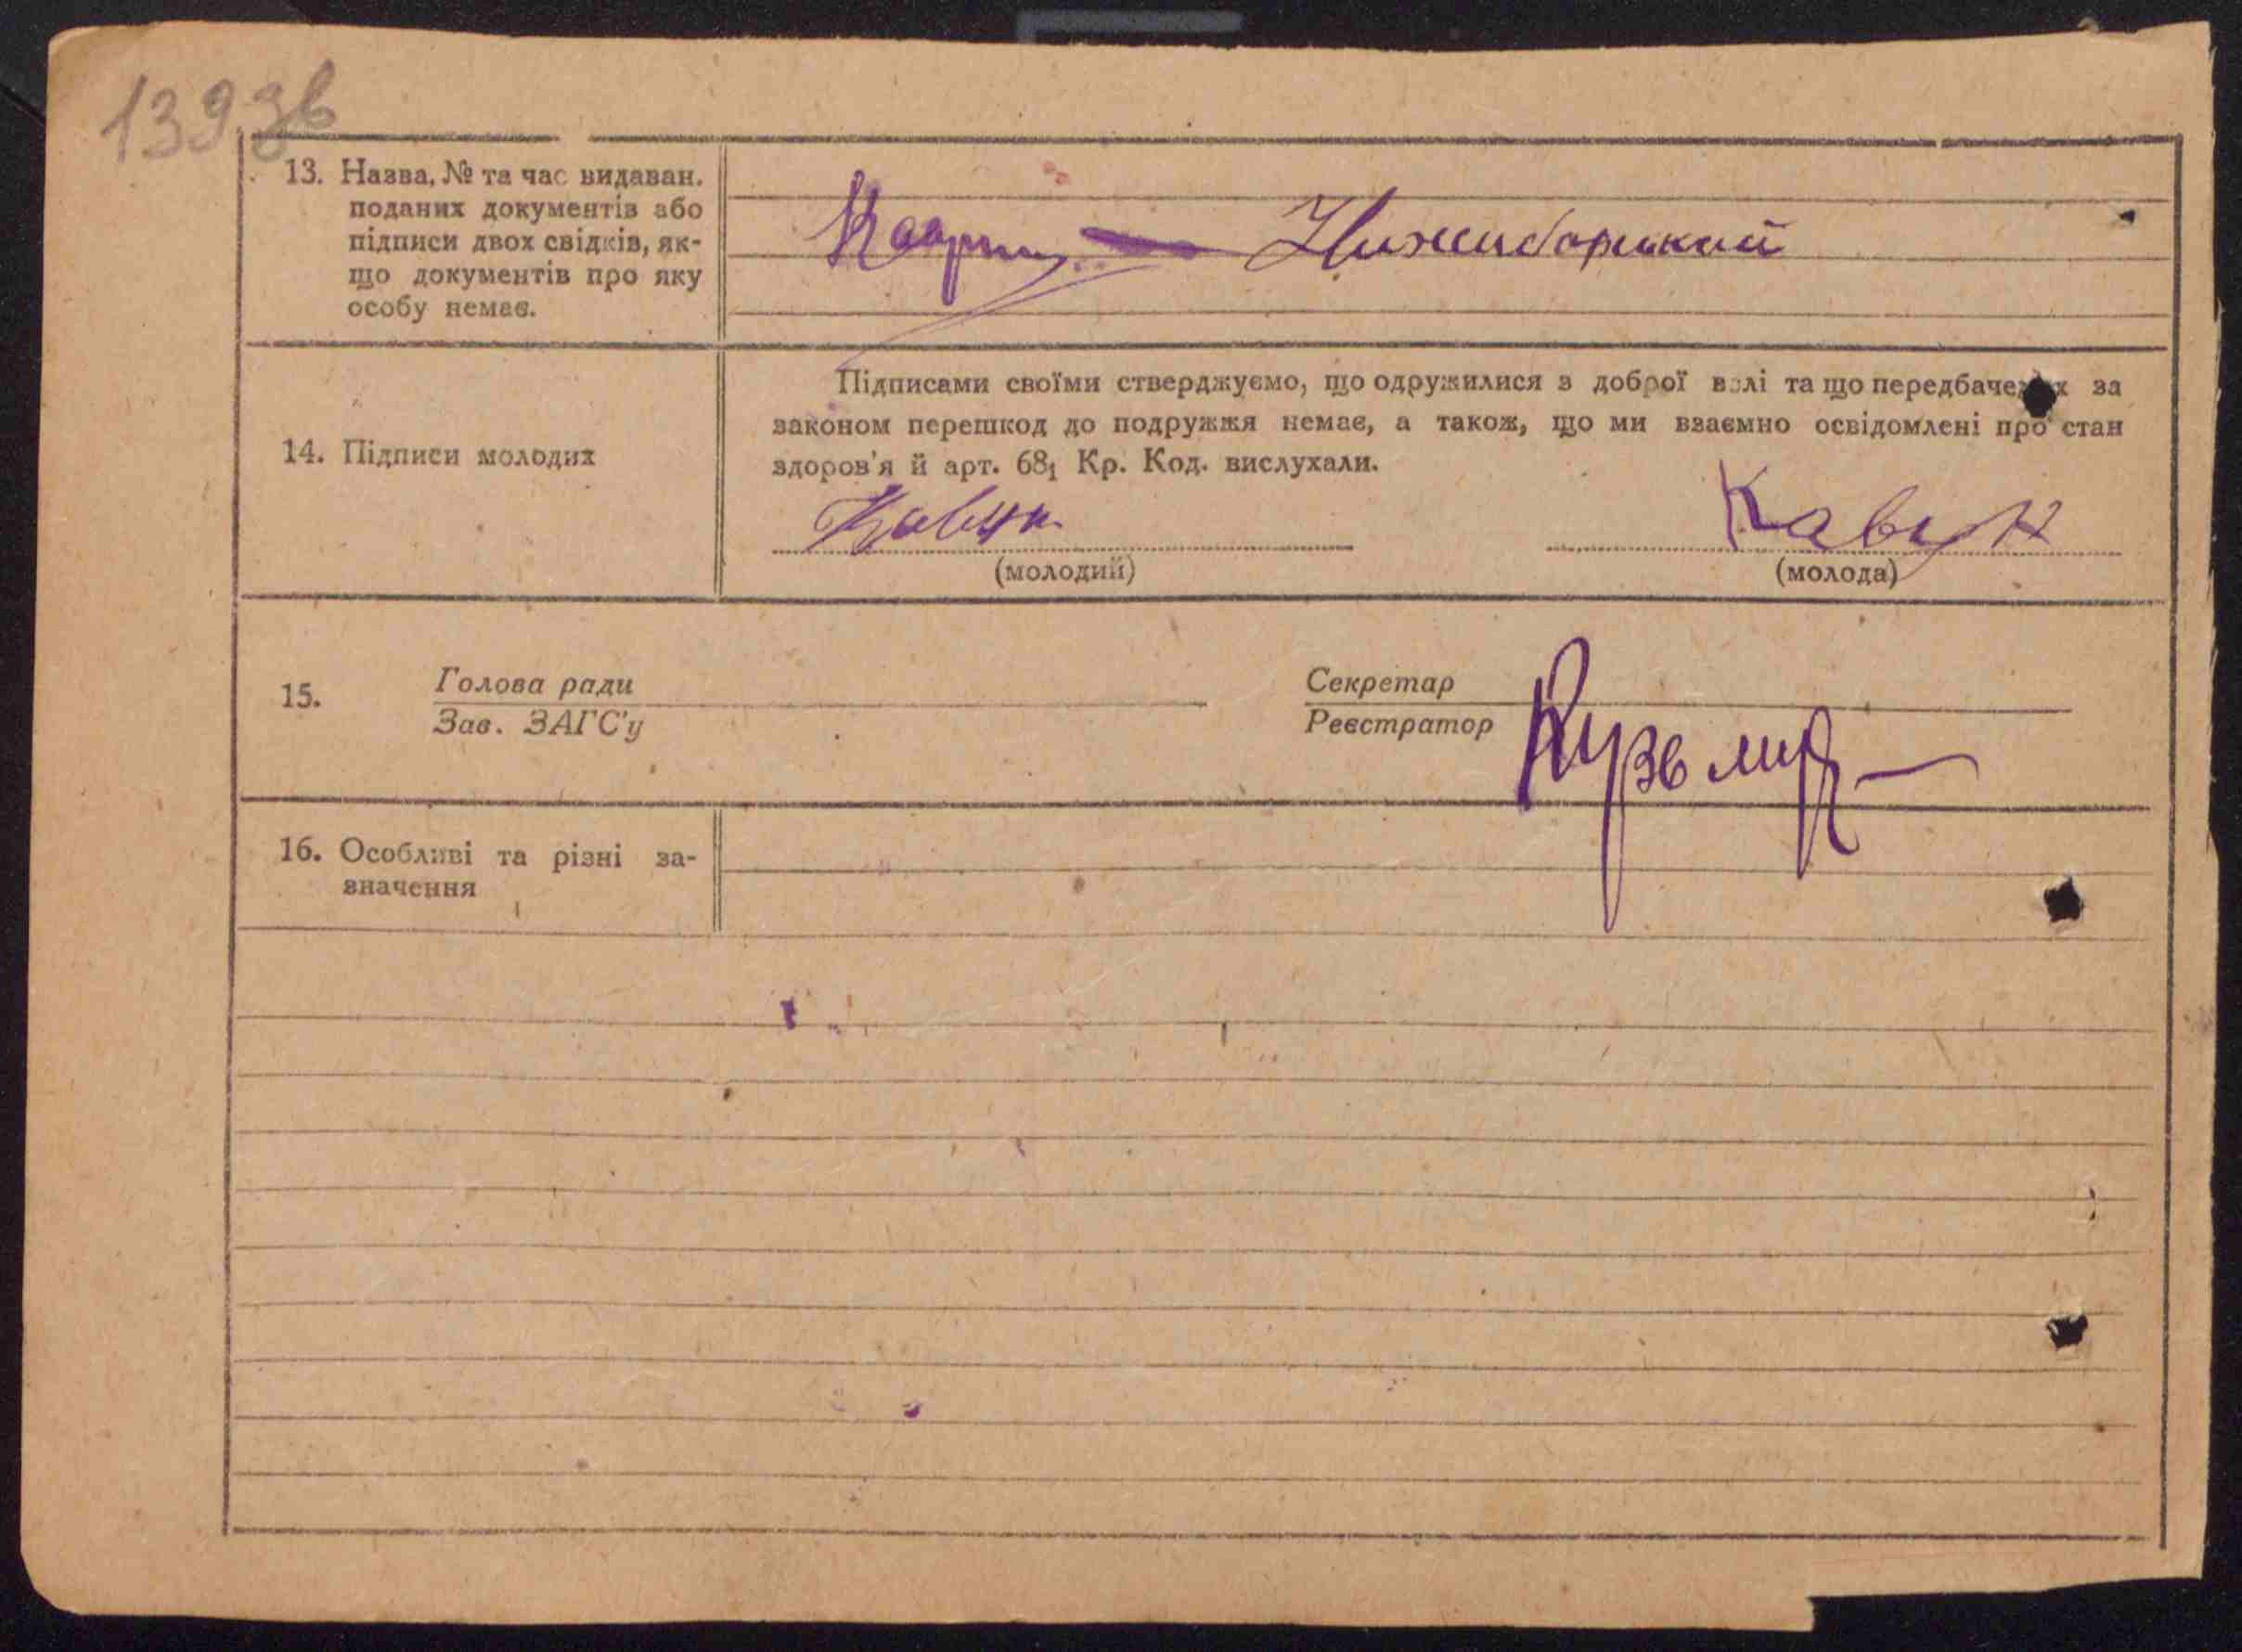 139 зв
13. Назва, № та час видаван.
поданих документів або
підписи двох свідків, як-
що документів про яку
особу немає.
14. Підписи молодих
Підписами своїми стверджуємо, що одружилися з доброї волі та що передбачених за
законом перешкод до подружжя немає, а також, що ми взаємно освідомлені про стан
здоров'я й арт. 68₁ Кр. Код. вислухали.
(молодий) (молода)
15. Голова ради Секретар
Зав. ЗАГС'у Реєстратор
16. Особливі та різні за-
значення